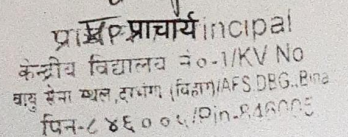 प्राचार्य Principal
केन्द्रीय विद्यालय नं०-1/KV No
वायु सेना स्थल,दरभंगा (बिहार)/AFS DBG.,
पिन-८४६००५/Pin-846005